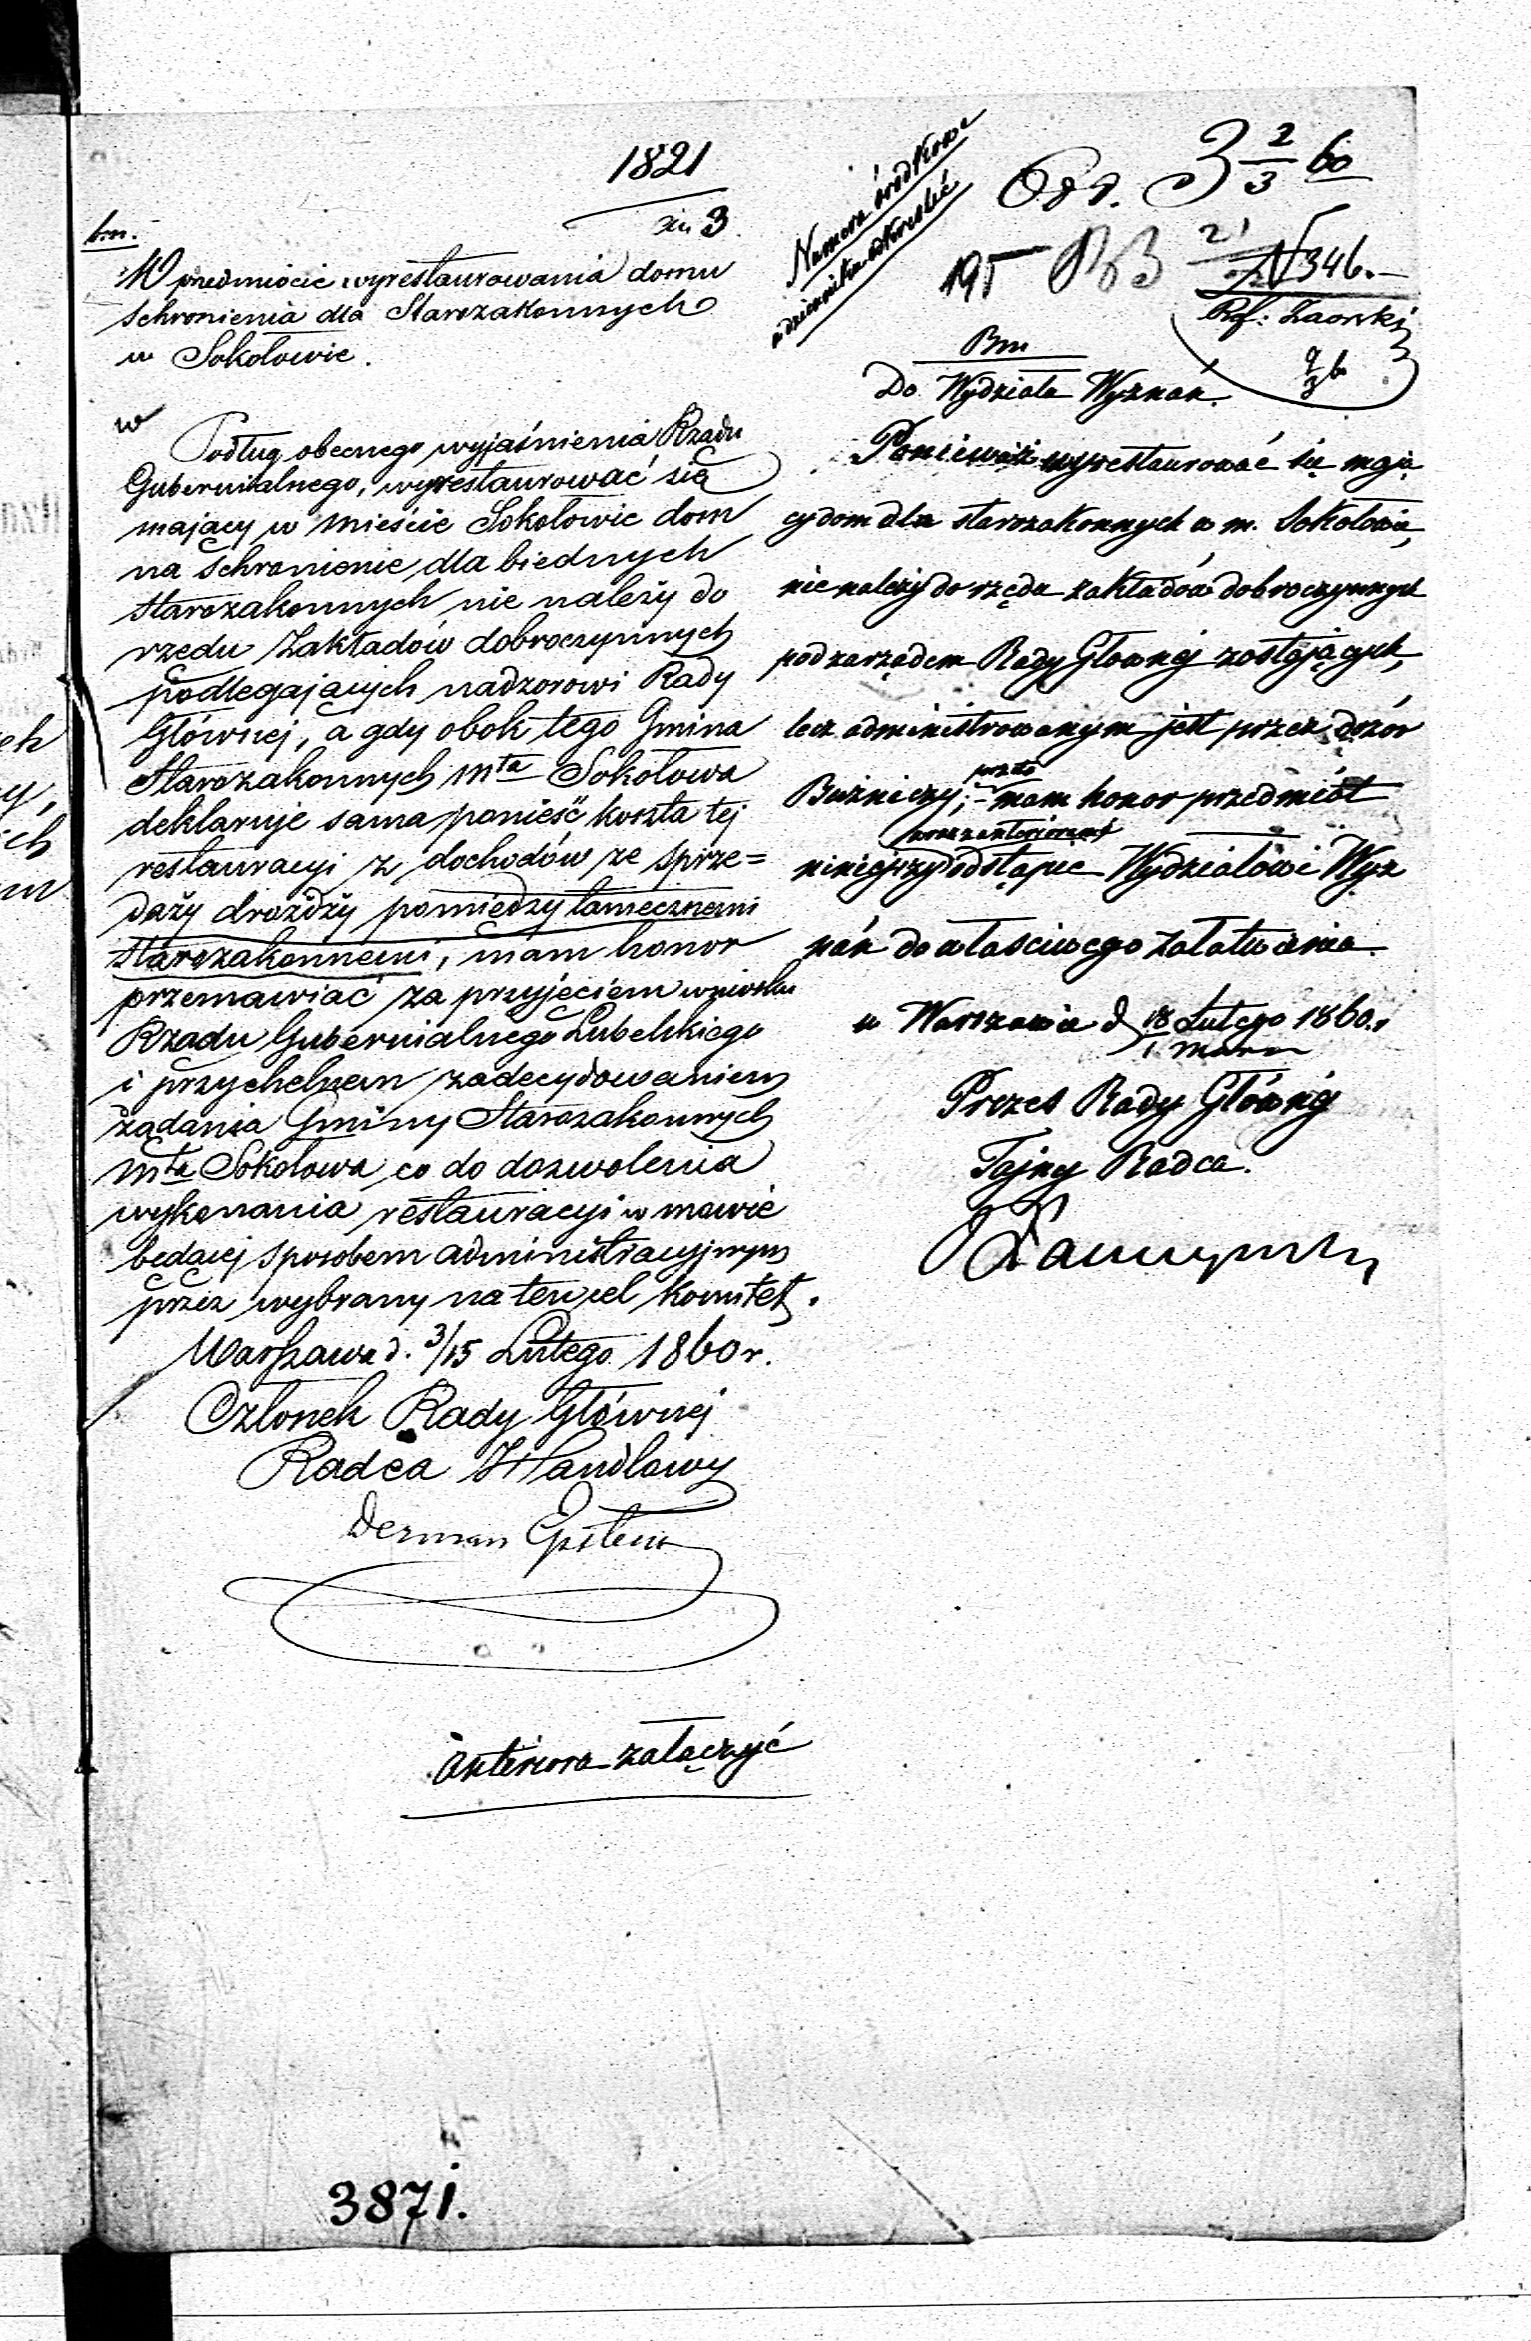 1821
3
W przedmiocie wyrestaurowania domu
schronienia dla Starozakonnych
w Sokołowie.
Podług obecnego wyjaśnienia Rządu
Gubernialnego, wyrestaurować się
mający w mieście Sokołowie dom
na schronienie dla biednych
starozakonnych nie należy do
rzędu Zakładów dobroczynnych
podlegających nadzorowi Rady
Głównej, a gdy obok tego Gmina
Starozakonnych mta Sokołowa
deklaruje sama ponieść koszta tej
restauracyi z dochodów ze sprze=
daży drożdży pomiędzy tamecznemi
starozakonnemi, mam honor
przemawiać za przyjęciem wniosku
Rządu Gubernialnego Lubelskiego
i przychelnem zadecydowaniem
żądania Gminy Starozakonnych
mta Sokołowa co do dozwolenia
wykonania restauracyi w mowie
będącej sposobem administracyjnym
przez wybrany na ten cel komitet.
Warszawa d. 3/15 Lutego 1860 r.
Członek Rady Głównej
Radca Handlowy
Herman Epstein
anteriora załączyć
3871.
Numera środkowe
w dzienniku odkreślić
Odd. 3 2/3 60
195
N 346.
Do Wydziału Wyznań.
Ponieważ wyrestaurować się mają
cy dom dla starozakonnych w m. Sokołowie,
nie należy do rzędu zakładów dobroczynnych
pod zarządem Rady Głównej zostających,
lecz administrowanym jest przez dozór
Bużniczy; przeto mam honor przedmiót
niniejszy wraz z anteriorami odstąpić Wydziałowi Wyz
nań do właściwego załatwienia.
w Warszawie d. 18 Lutego 1860 r.
1 Marca
Prezes Rady Głównéj
Tajny Radca.